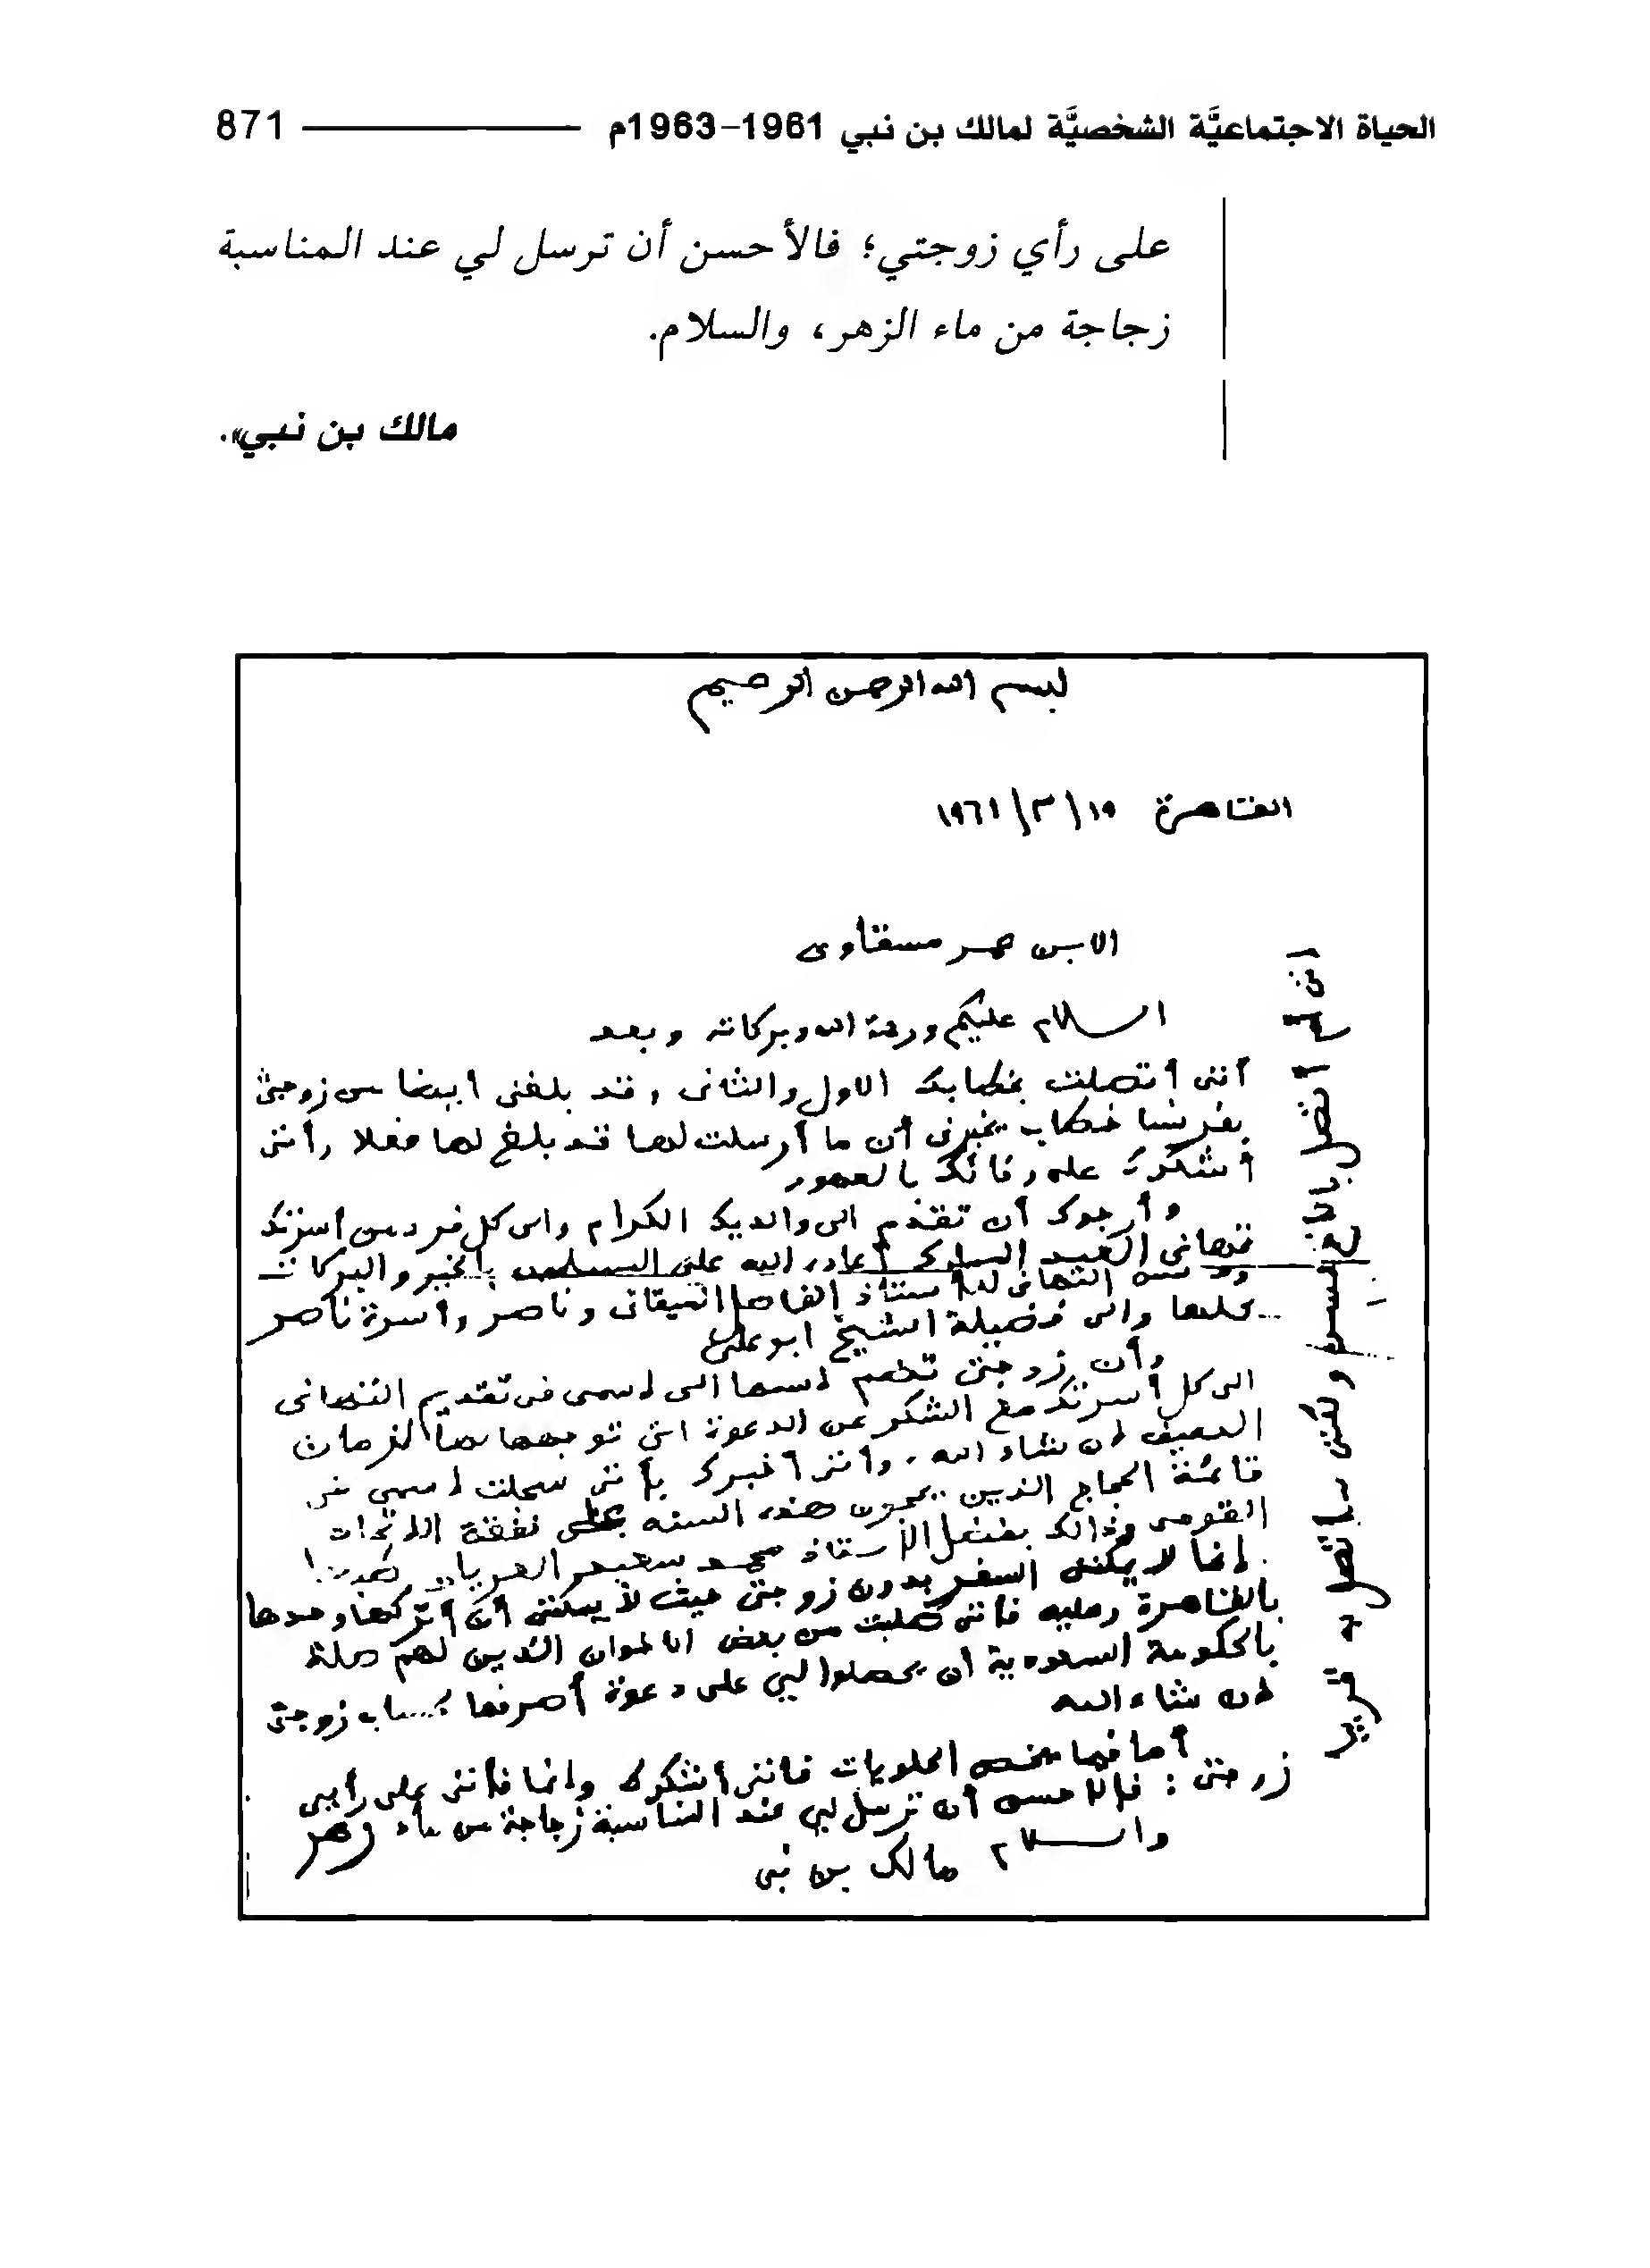 الحياة الاجتماعيَّة الشخصيَّة لمالك بن نبي 1961-1963م 871
على رأي زوجتي؛ فالأحسن أن ترسل لي عند المناسبة
زجاجة من ماء الزهر، والسلام.
مالك بن نبي».
بسم الله الرحمن الرحيم
القاهرة ١٩٦١/٣/١٥
الابن عمر مسقاوى
السلام عليكم ورحمة الله وبركاته وبعد
أننى أتصلت بخطابك الاول والثانى وقد بلغنى أيضا من زوجتى
بفرنسا خطاب يخبرنى أن ما أرسلت لها قد بلغ لها فعلا وأننى
أشكرك على وفائك بالعهود
وأرجوك أن تقدم الى والديك الكرام والى كل فرد من أسرتك
تهانى العيد المبارك أعاده الله على المسلمين بالخير والبركات
التهانى للأستاذ الفاضل الميقاتى وناصر وأسرة ناصر
كلها والى فضيلة الشيخ ابو على
وأن زوجتى تضم اسمها الى اسمى فى تقديم التهانى
الى كل أسرتك مع الشكر عن الدعوة التى توجهها لنا لزمان
الصيف ان شاء الله. وأننى أخبرك بأننى سجلت اسمى فى
قائمة الحجاج الذين يحجون هذه السنه على نفقة الاتحاد
القومى وذالك بفضل الأستاذ محمد سعيد العريان
انما لا يمكننى السفر بدون زوجتى حيث لا يمكننى أن أتركها وحدها
بالقاهرة وعليه فاننى طلبت من بعض الاخوان الذين لهم صلة
بالحكومة السعودية أن يحصلوا لي على دعوة أصرفها بحساب زوجتى
ان شاء الله
أما فيما يخص الحلويات فاننى أشكرك وانما فأننى على رأيى
زوجتى: فالاحسن أن ترسل لي عند المناسبة زجاجة من ماء زهر
والسلام مالك بن نبى
اننى لم اتصل بالاخ ولكنى سأتصل به قريبا